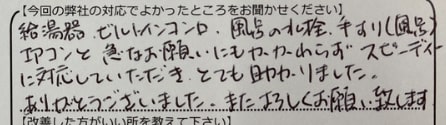 【今回の弊社の対応でよかったところをお聞かせください】
給湯器、ビルトインコンロ、風呂の水栓、手すり(風呂)
エアコンと急なお願いにもかかわらずスピーディー
に対応していただき、とても助かりました。
ありがとうございました。またよろしくお願い致します
【改善した方がいい所を教えて下さい】